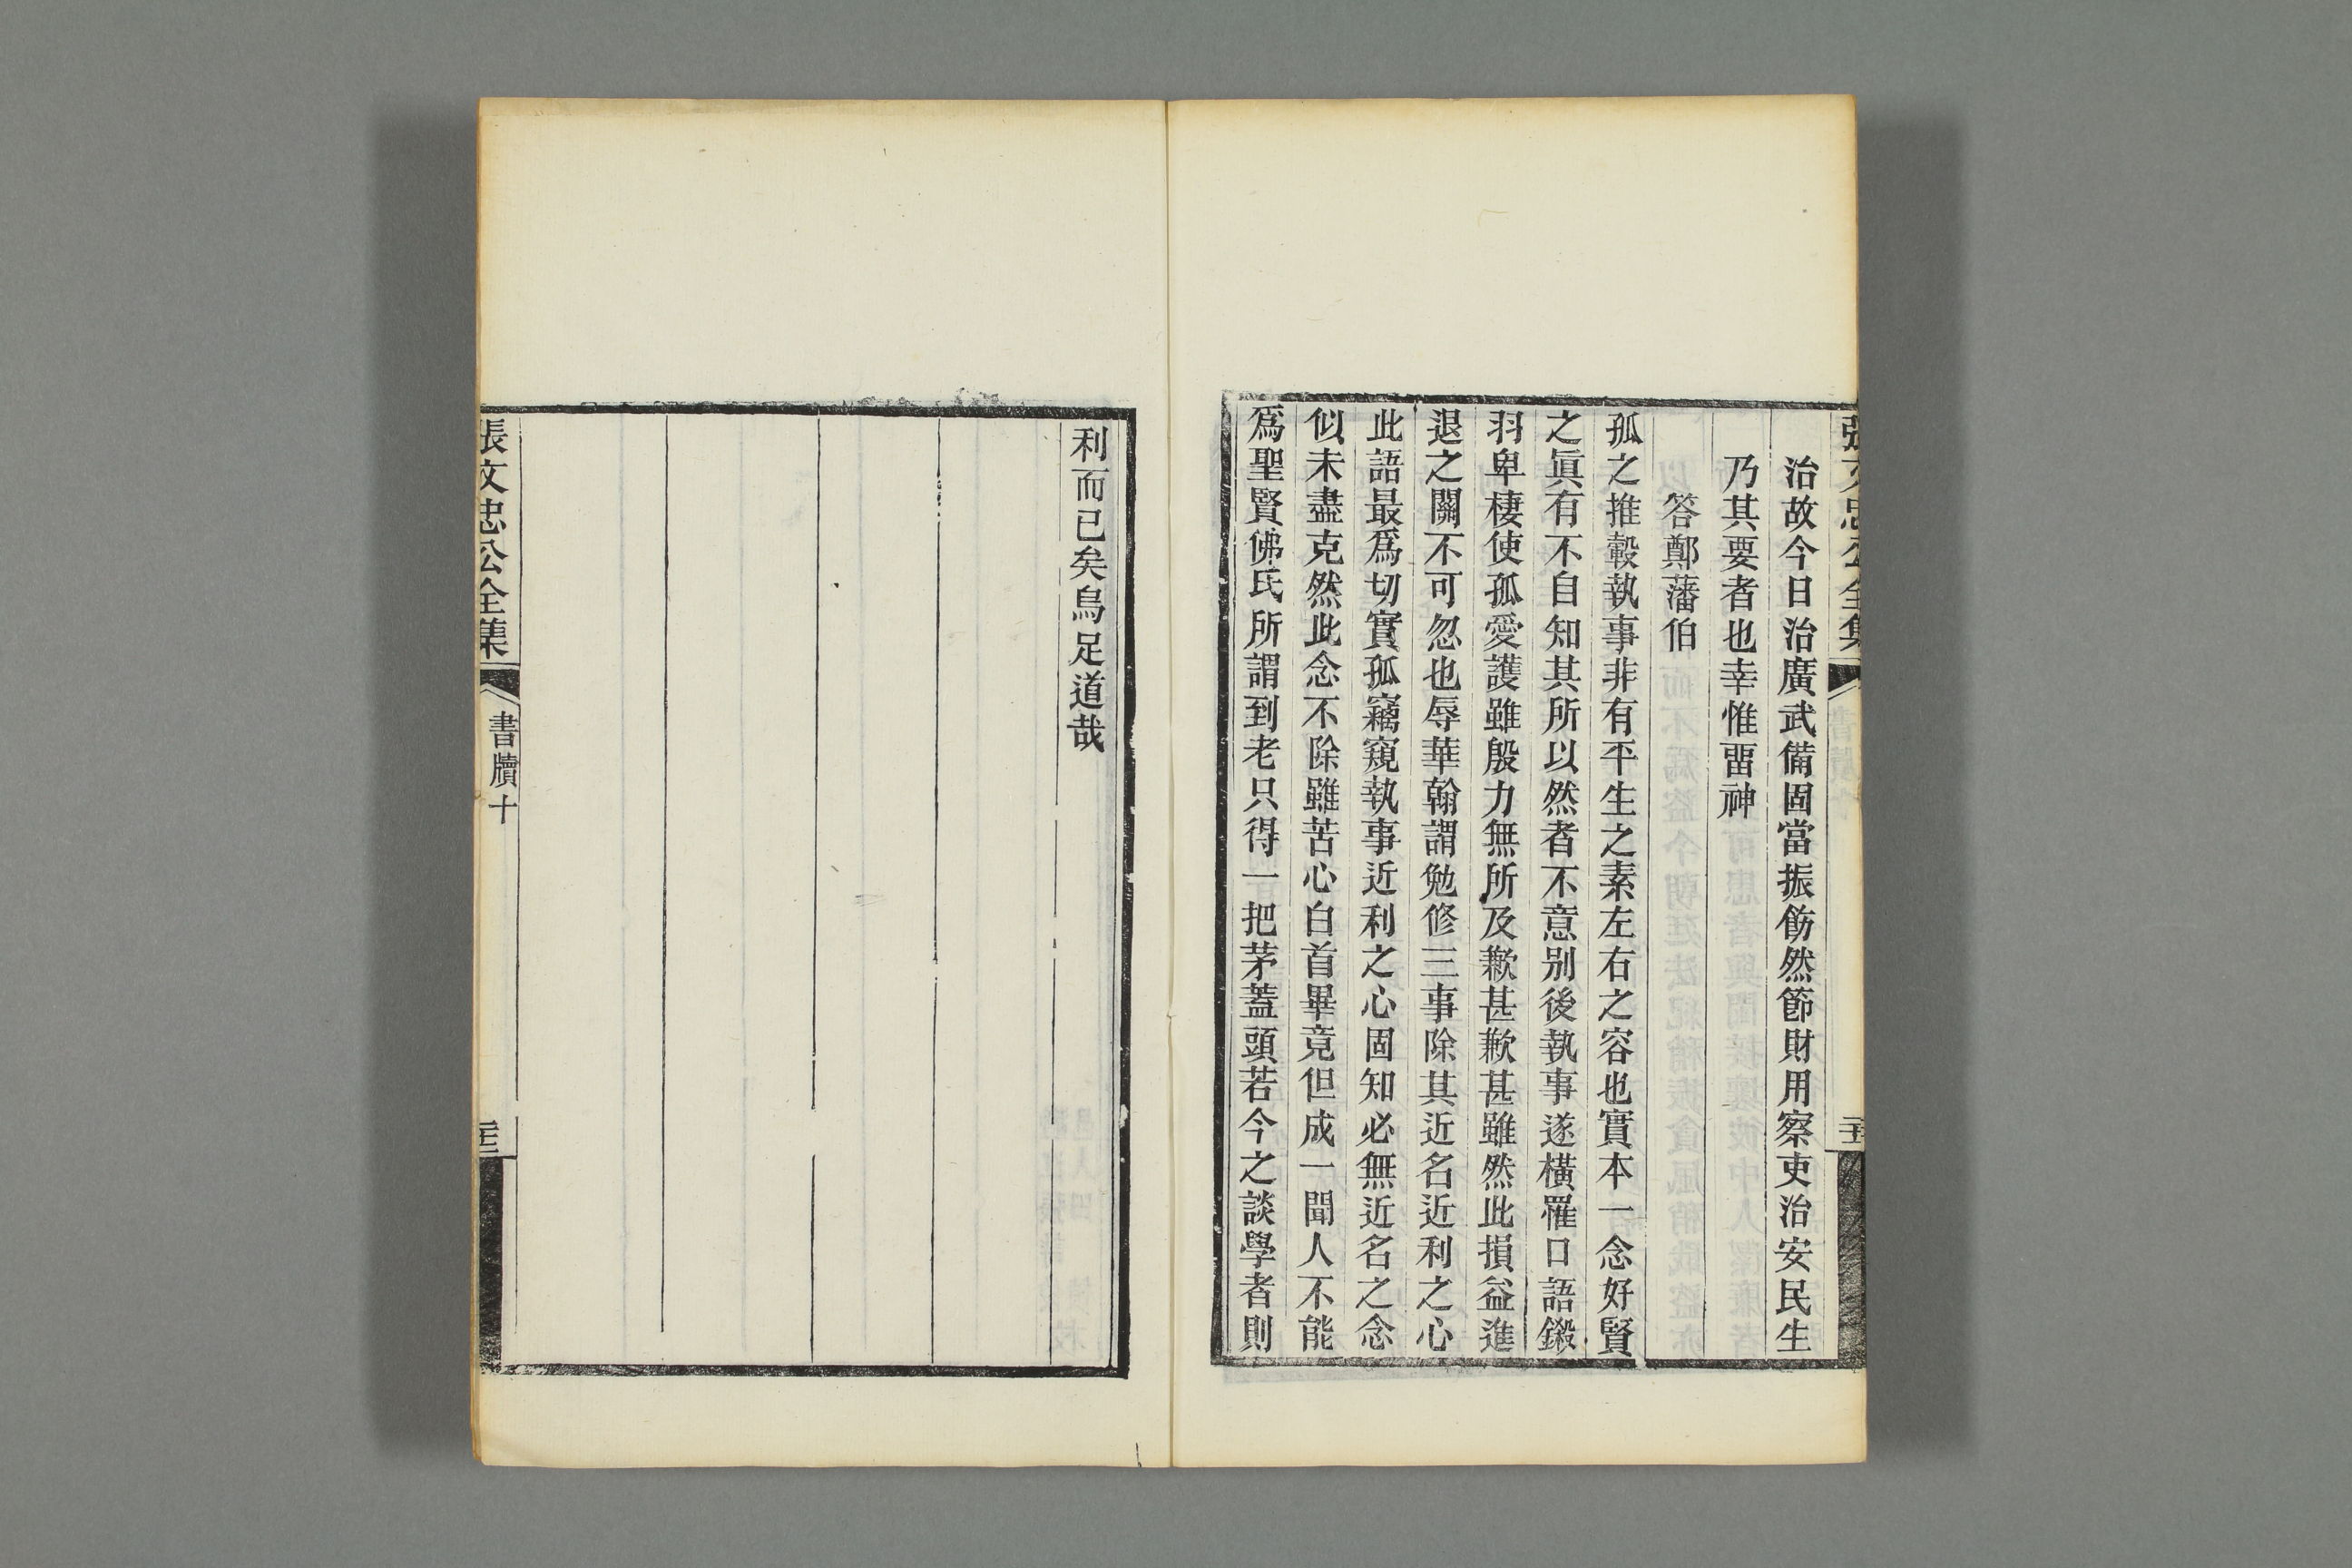 張文忠公全集
治故今日治廣武備固當振飭然節財用察吏治安民生
乃其要者也幸惟畱神
答鄭藩伯
孤之推轂執事非有平生之素左右之容也實本一念好賢
之眞有不自知其所以然者不意别後執事遂橫罹口語鎩
羽卑棲使孤愛護雖殷力無所及歉甚歉甚雖然此損益進
退之關不可忽也辱華翰謂勉修三事除其近名近利之心
此語最爲切實孤竊窺執事近利之心固知必無近名之念
似未盡克然此念不除雖苦心白首畢竟但成一聞人不能
爲聖賢佛氏所謂到老只得一把茅蓋頭若今之談學者則
利而已矣烏足道哉
張文忠公全集
書牘十